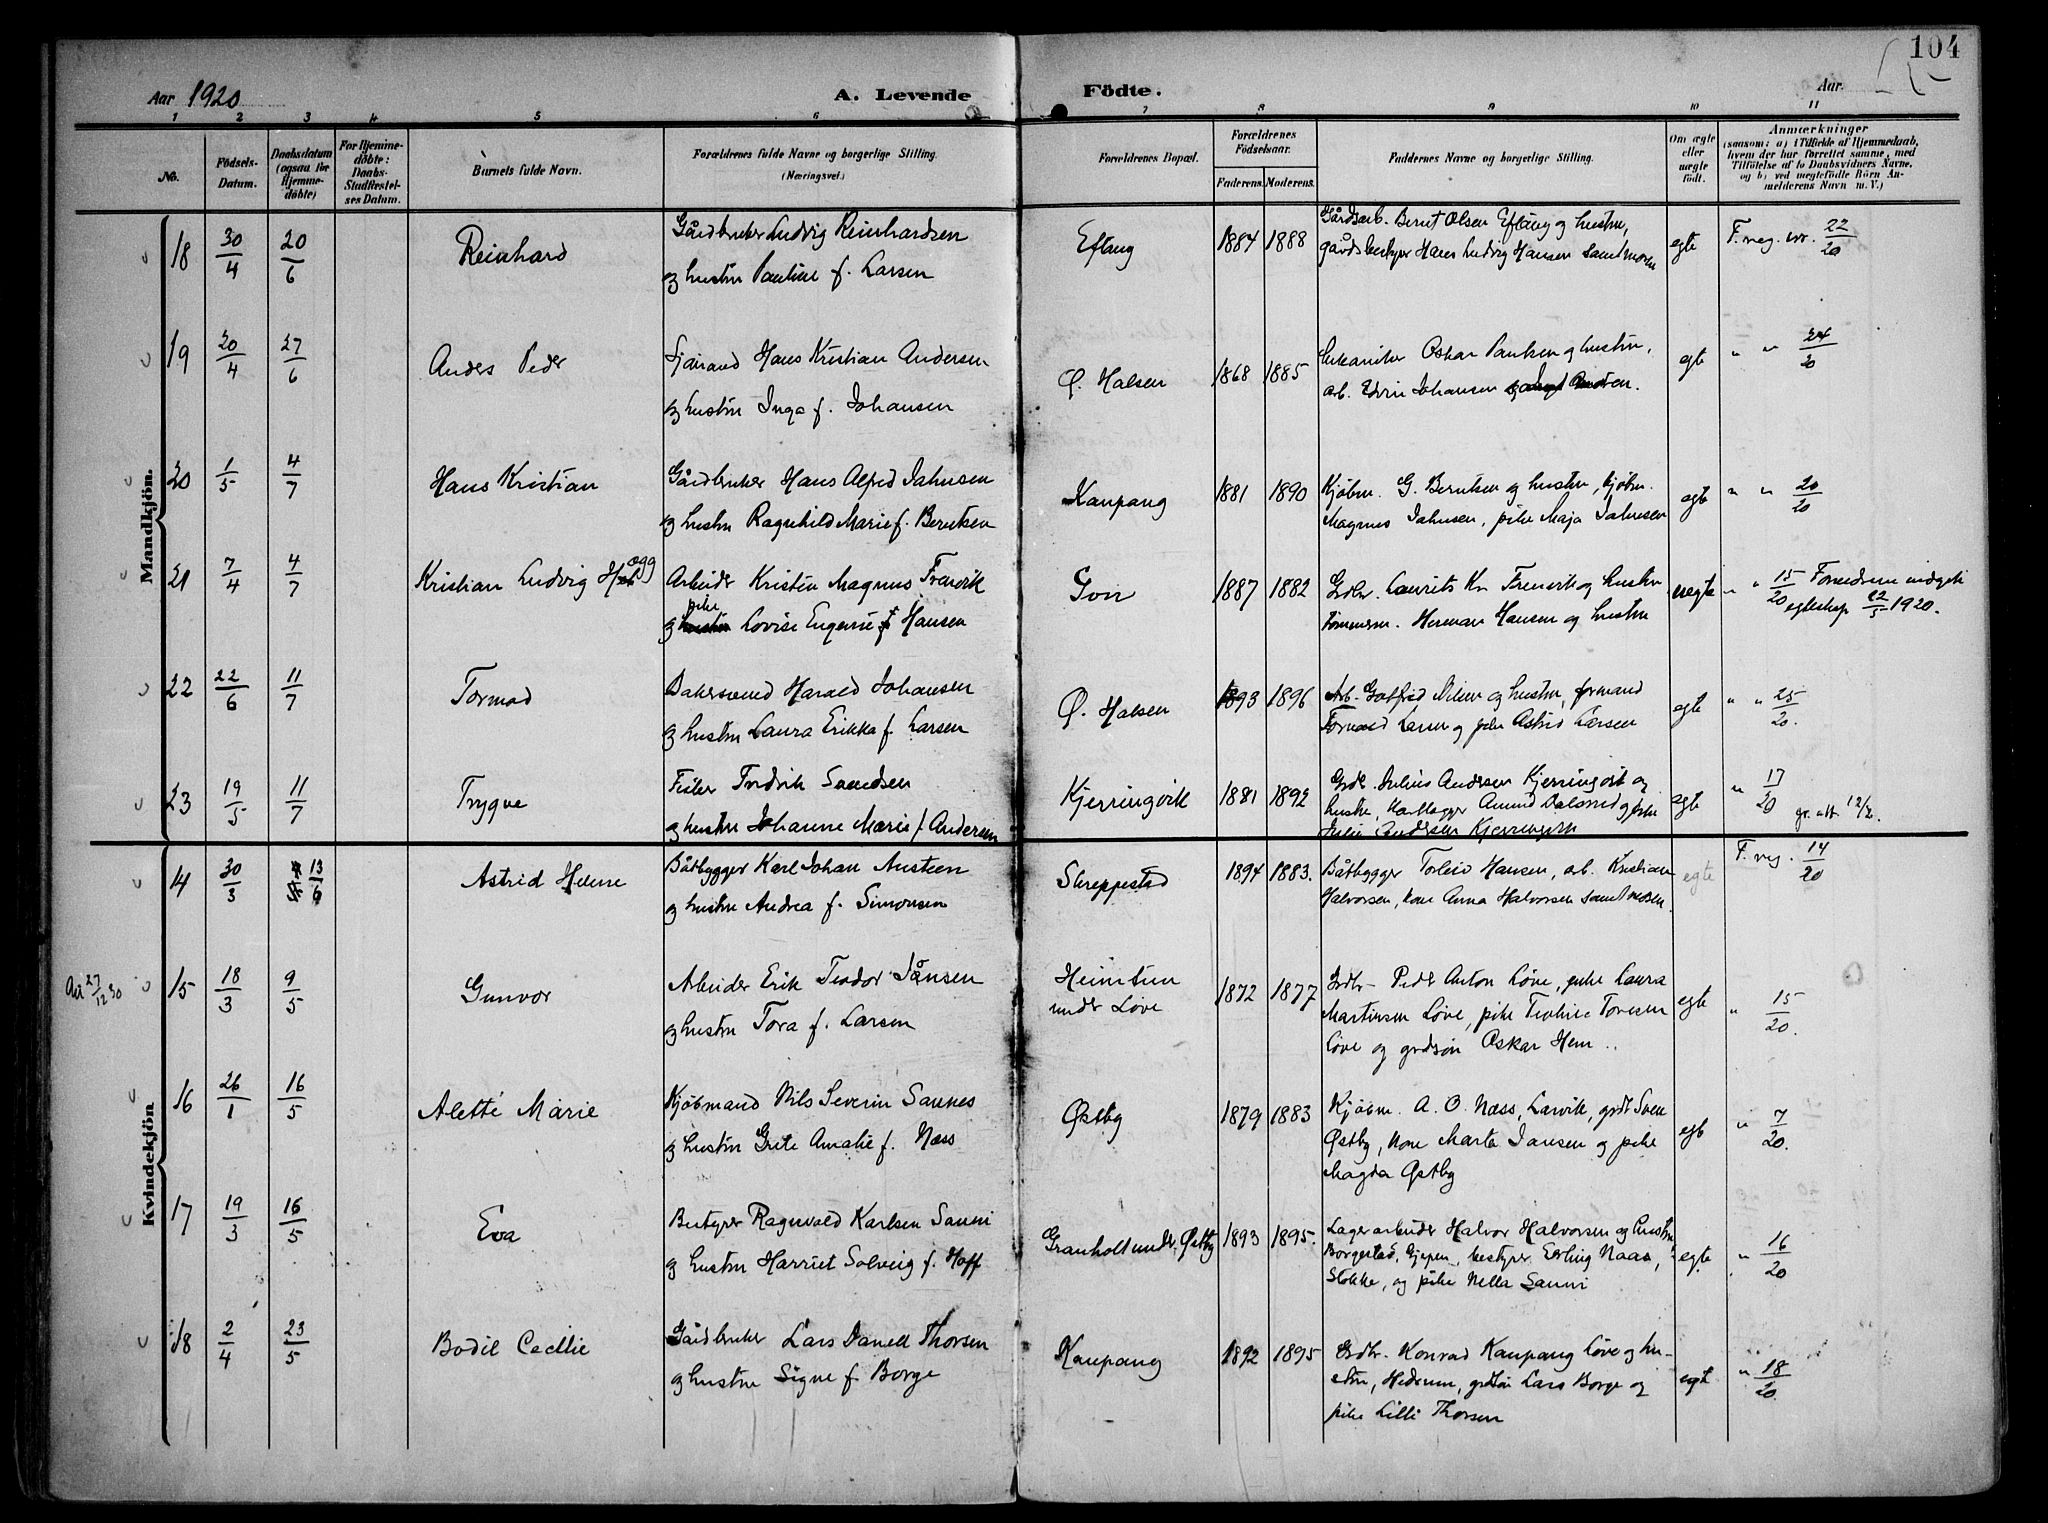 104
Aar 1920
A. Levende
Födte.
Aar
1 2 3 4 5 6 7 8 9 10 11
No.
Födsels-Datum.
Daabsdatum (ogsaa for Hjemmedöbte)
For Hjemmedöbte: Daabs-Stadfæstelses Datum.
Barnets fulde Navn.
Forældrenes fulde Navne og borgerlige Stilling. (Næringsvei.)
Forældrenes Bopæl.
Forældrenes Födselsaar.
Faderens. Moderens.
Faddernes Navne og borgerlige Stilling.
Om ægte eller uægte födt.
Anmærkninger
(saasom: a) i Tilfælde af Hjemmedaab, hvem der har forrettet samme, med Tilföielse af to Daabsvidners Navne, og b) ved uegtefödte Börn Anmelderens Navn m. V.)
Mandkjön.
18 30/4 20/6 Reinhard
Gårdbruker Ludvig Reinhardsen
og hustru Pauline f. Larsen
Eftang 1884 1888
Gårdsarb. Bernt Olsen Eftang og hustru,
gårdsbestyrer Hans Ludvig Hansen samt moren
egte F. reg. nr. 22/20
19 20/4 27/6 Anders Peder
Sjømand Hans Kristian Andersen
og hustru Inga f. Johansen
Ø. Halsen 1868 1885
Mekaniker Oskar Paulsen og hustru,
arb. Edvin Johansen
egte " " 24/20
20 1/5 4/7 Hans Kristian
Gårdbruker Hans Alfred Jahnsen
og hustru Ragnhild Marie f. Berntsen
Kaupang 1881 1890
Kjøbm. G. Berntsen og hustru, kjøbm.
Magnus Jahnsen, pike Maja Jahnsen
egte " " 20/20
21 7/4 4/7 Kristian Ludvig Hegg
Arbeider Kristen Magnus Fremvik
pike
og hustru Lovise Eugenie f Hansen
Gon 1887 1882
Grdbr. Laurits Kr. Fremvik og hustru
Tømmerm. Herman Hansen og hustru
uegte " " 15/20 Forældrene indgik
egteskap 22/5 1920.
22 22/6 11/7 Tormod
Bakersvend Harald Johansen
og hustru Laura Erikka f. Larsen
Ø. Halsen 1893 1896
Arb. Gotfred Nilsen og hustru, formand
Tormod Larsen og pike Astrid Larsen
egte " " 25/20.
23 19/5 11/7 Trygve
Fisker Fredrik Samdsen
og hustru Johanne Marie f. Andersen
Kjerringvik 1881 1892
Grdbr. Julius Andersen Kjerringvik og
hustru, Amund Dalsrud og pike
Julie Andersen Kjerringvik
egte " 17/20 gr. att. 12/2.
Kvindekjön
14 30/3 13/6 Astrid Helene
Båtbygger Karl Johan Austeen
og hustru Andrea f. Simonsen
Skreppestad 1894 1883.
Båtbygger Torleif Hansen, arb. Kristian
Halvorsen, kone Anna Halvorsen samt moren.
egte F. reg. 14/20
27/12 30
15 18/3 9/5 Gunvor
Arbeider Erik Teodor Jansen
og hustru Tora f. Larsen
Heimtun
under Løve
1872 1877
Grdbr. Peder Anton Løve, pike Laura
Martinsen Løve, pike Tomine Toresen
Løve og grdsøn Oskar Hem
egte " 15/20.
16 26/1 16/5 Alette Marie
Kjøbmand Nils Severin Sannes
og hustru Grete Amalie f. Næss
Østby 1879 1883
Kjøbm. A. O. Næss, Larvik, grdbr Sven
Østby, kone Marta Jansen og pike
Magda Østby
egte " 7/20.
17 19/3 16/5 Eva
Bestyrer Ragnvald Karlsen Sanni
og hustru Harriet Solveig f. Hoff
Granholt under Østby 1893 1895.
Lagerarbeider Halvor Halvorsen og hustru
Borgestad, Gjerpen, bestyrer Erling Naas,
Stokke, og pike Nella Sanni
egte " 16/20
18 2/4 23/5 Bodil Cecilie
Gårdbruker Lars Daniel Thorsen
og hustru Signe f. Borge
Kaupang 1892 1895
Grdbr. Konrad Kaupang Løve og hu-
stru, Hedrum, grdsøn Lars Borge og
pike Lilli Thorsen
egte " 18/20.